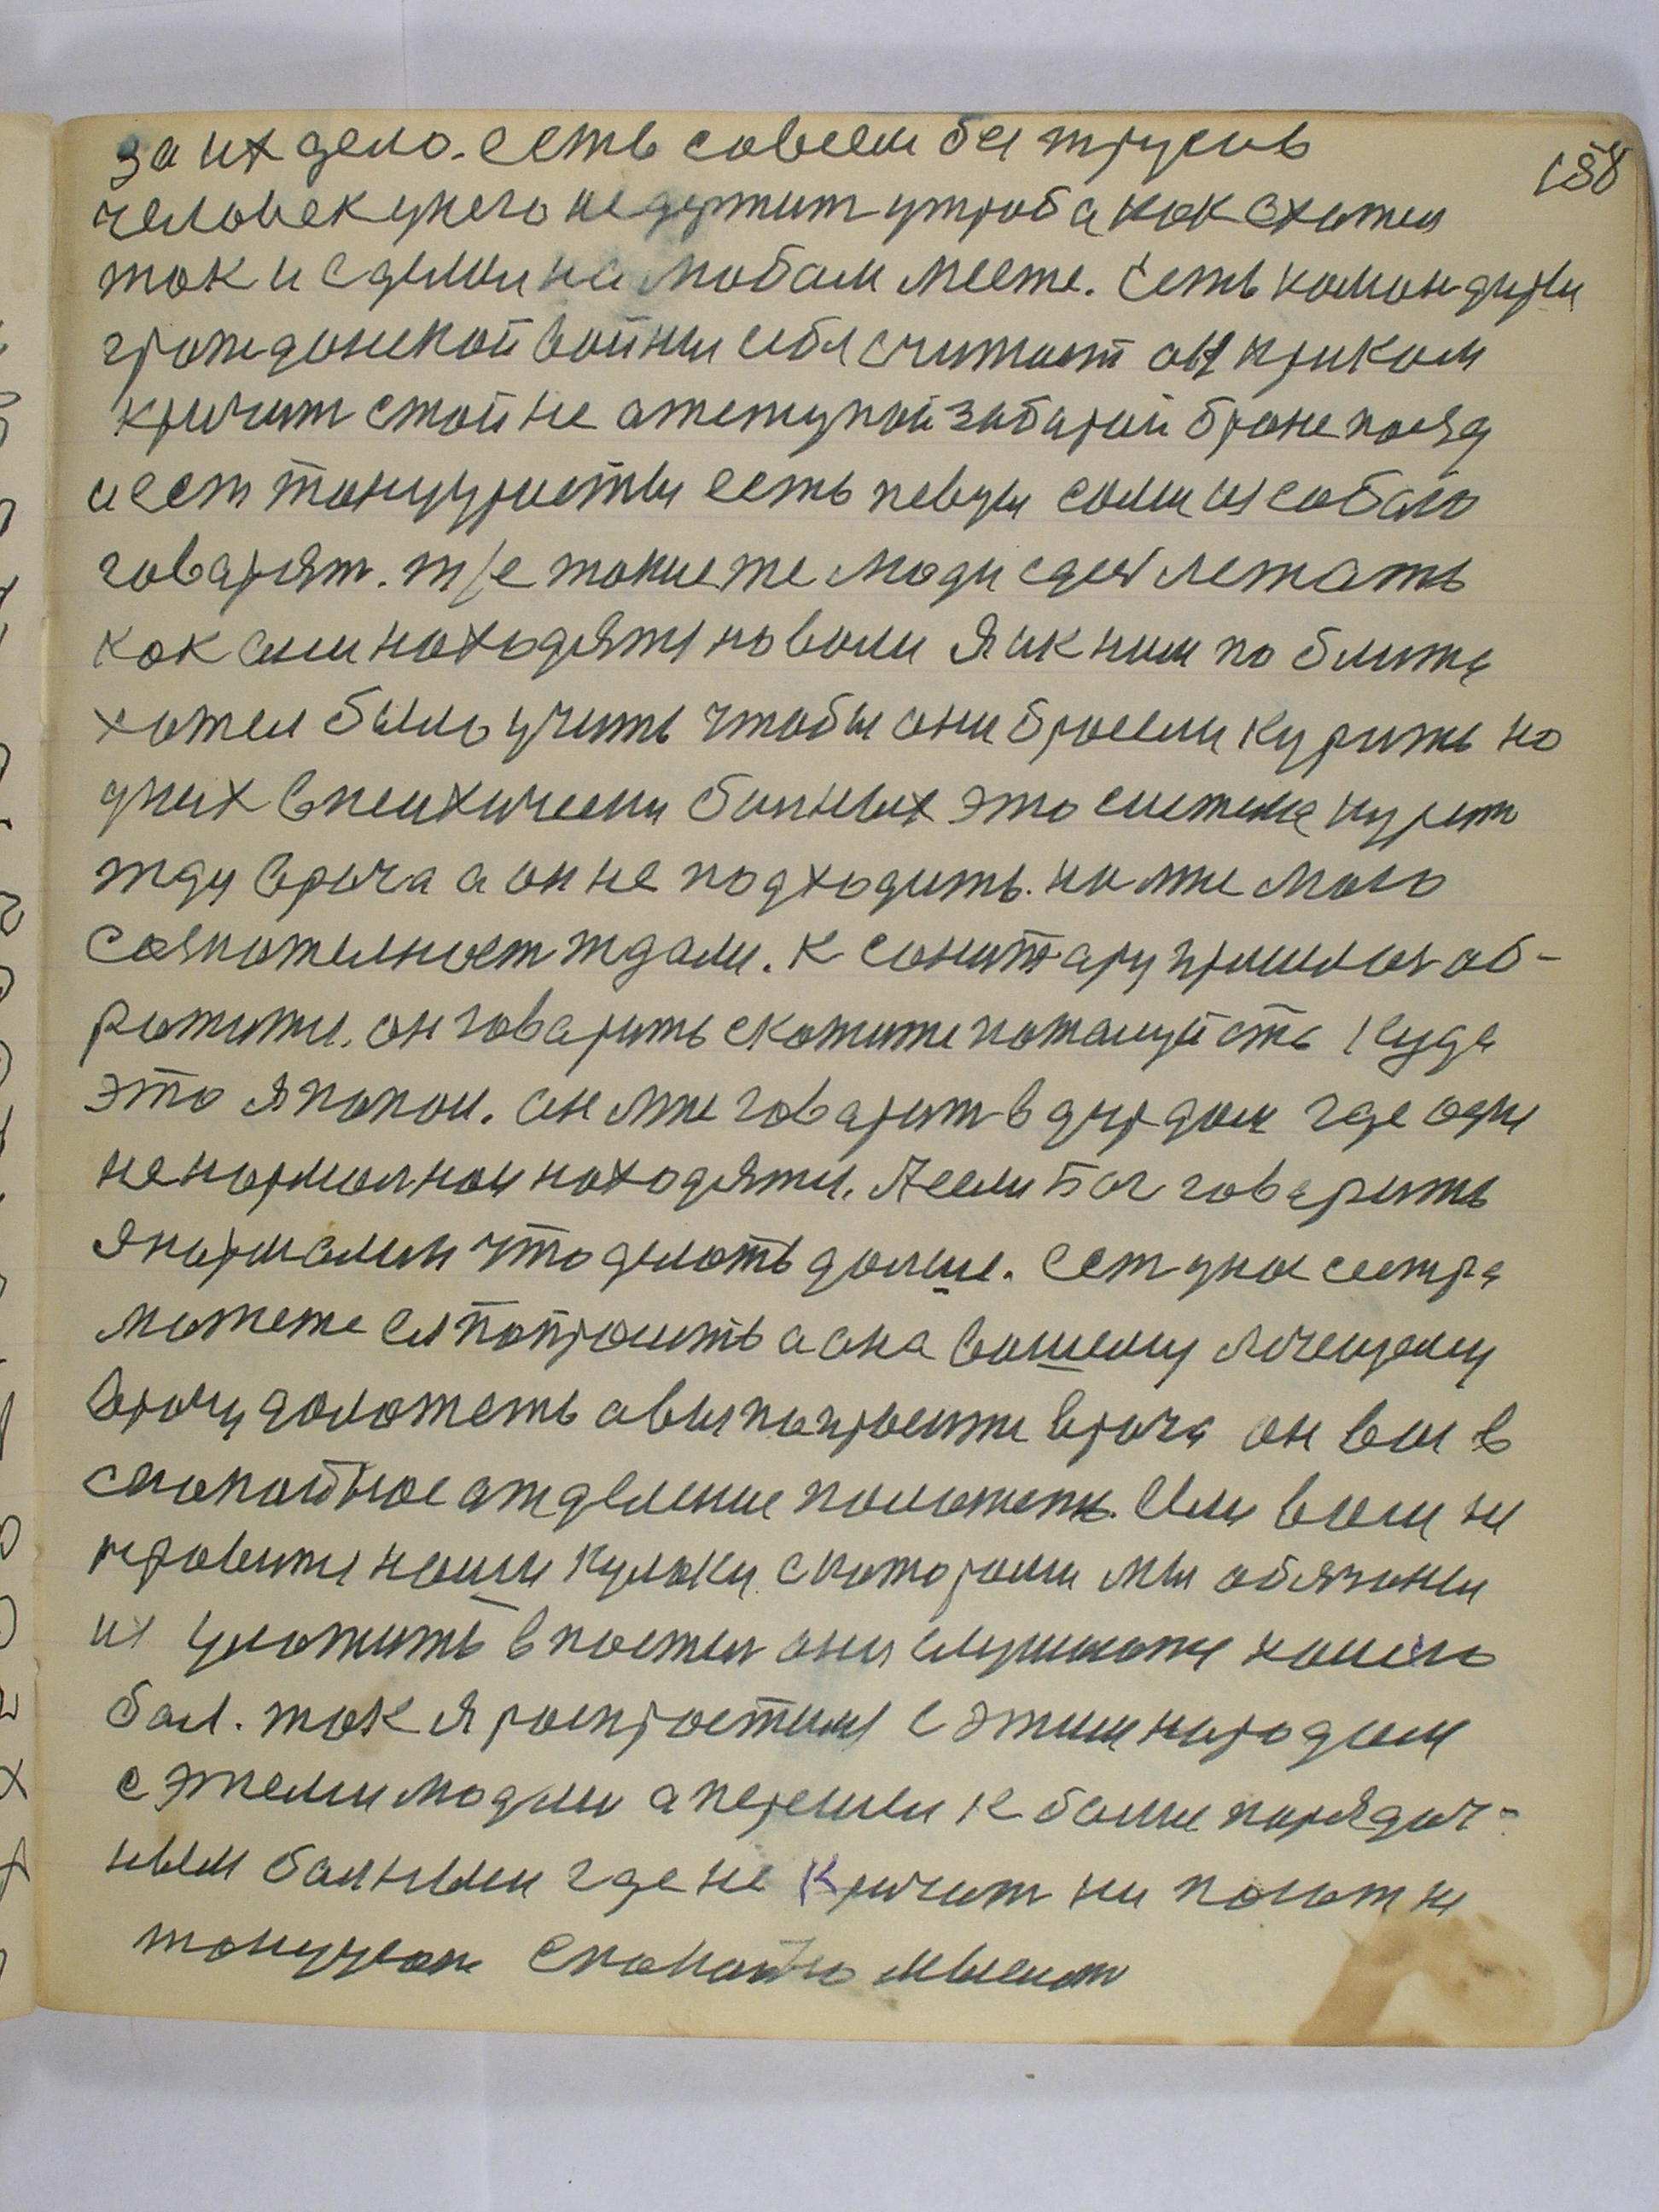 158
за их дело. есть совсем без трусов
человек унего недержит утроба как схотел
так и сделал на любом месте. есть командиры
гражданской войны себя считает он криком
кричит стой не атступай забирай бронепоезд
и ест танцуристы есть певцы сами из собою
говарят. т/е такие же люди сдесь лежать
как они находятся на воли я и к ним по ближе
хотел было учить чтобы они бросили курить но
у них в психически больных это система курит
жду врача а он не подходить. на мне мою
ждали. к санитару пришлось об-
ратится. он говарить скажите пожалуйста куда
это я попал. он мне говарит в дурдом где одни
ненормальнои находятся. А если Вас говарить
я нормален что делать далше. ест у нас сестра
можете ея попросить а она вашему лечещему
врачу доложеть а вы попросите врача он вас в
спокойное атделение положеть. Или вам не
нравится наши кулаки с которыми мы обязаны
их уложить в постел они слушаются нашего
бая. так я распростился с этим народом
с этеми людми а перешел к более порядоч-
ным больным где не кричит ни поют не
танцуют спокойно мыслят